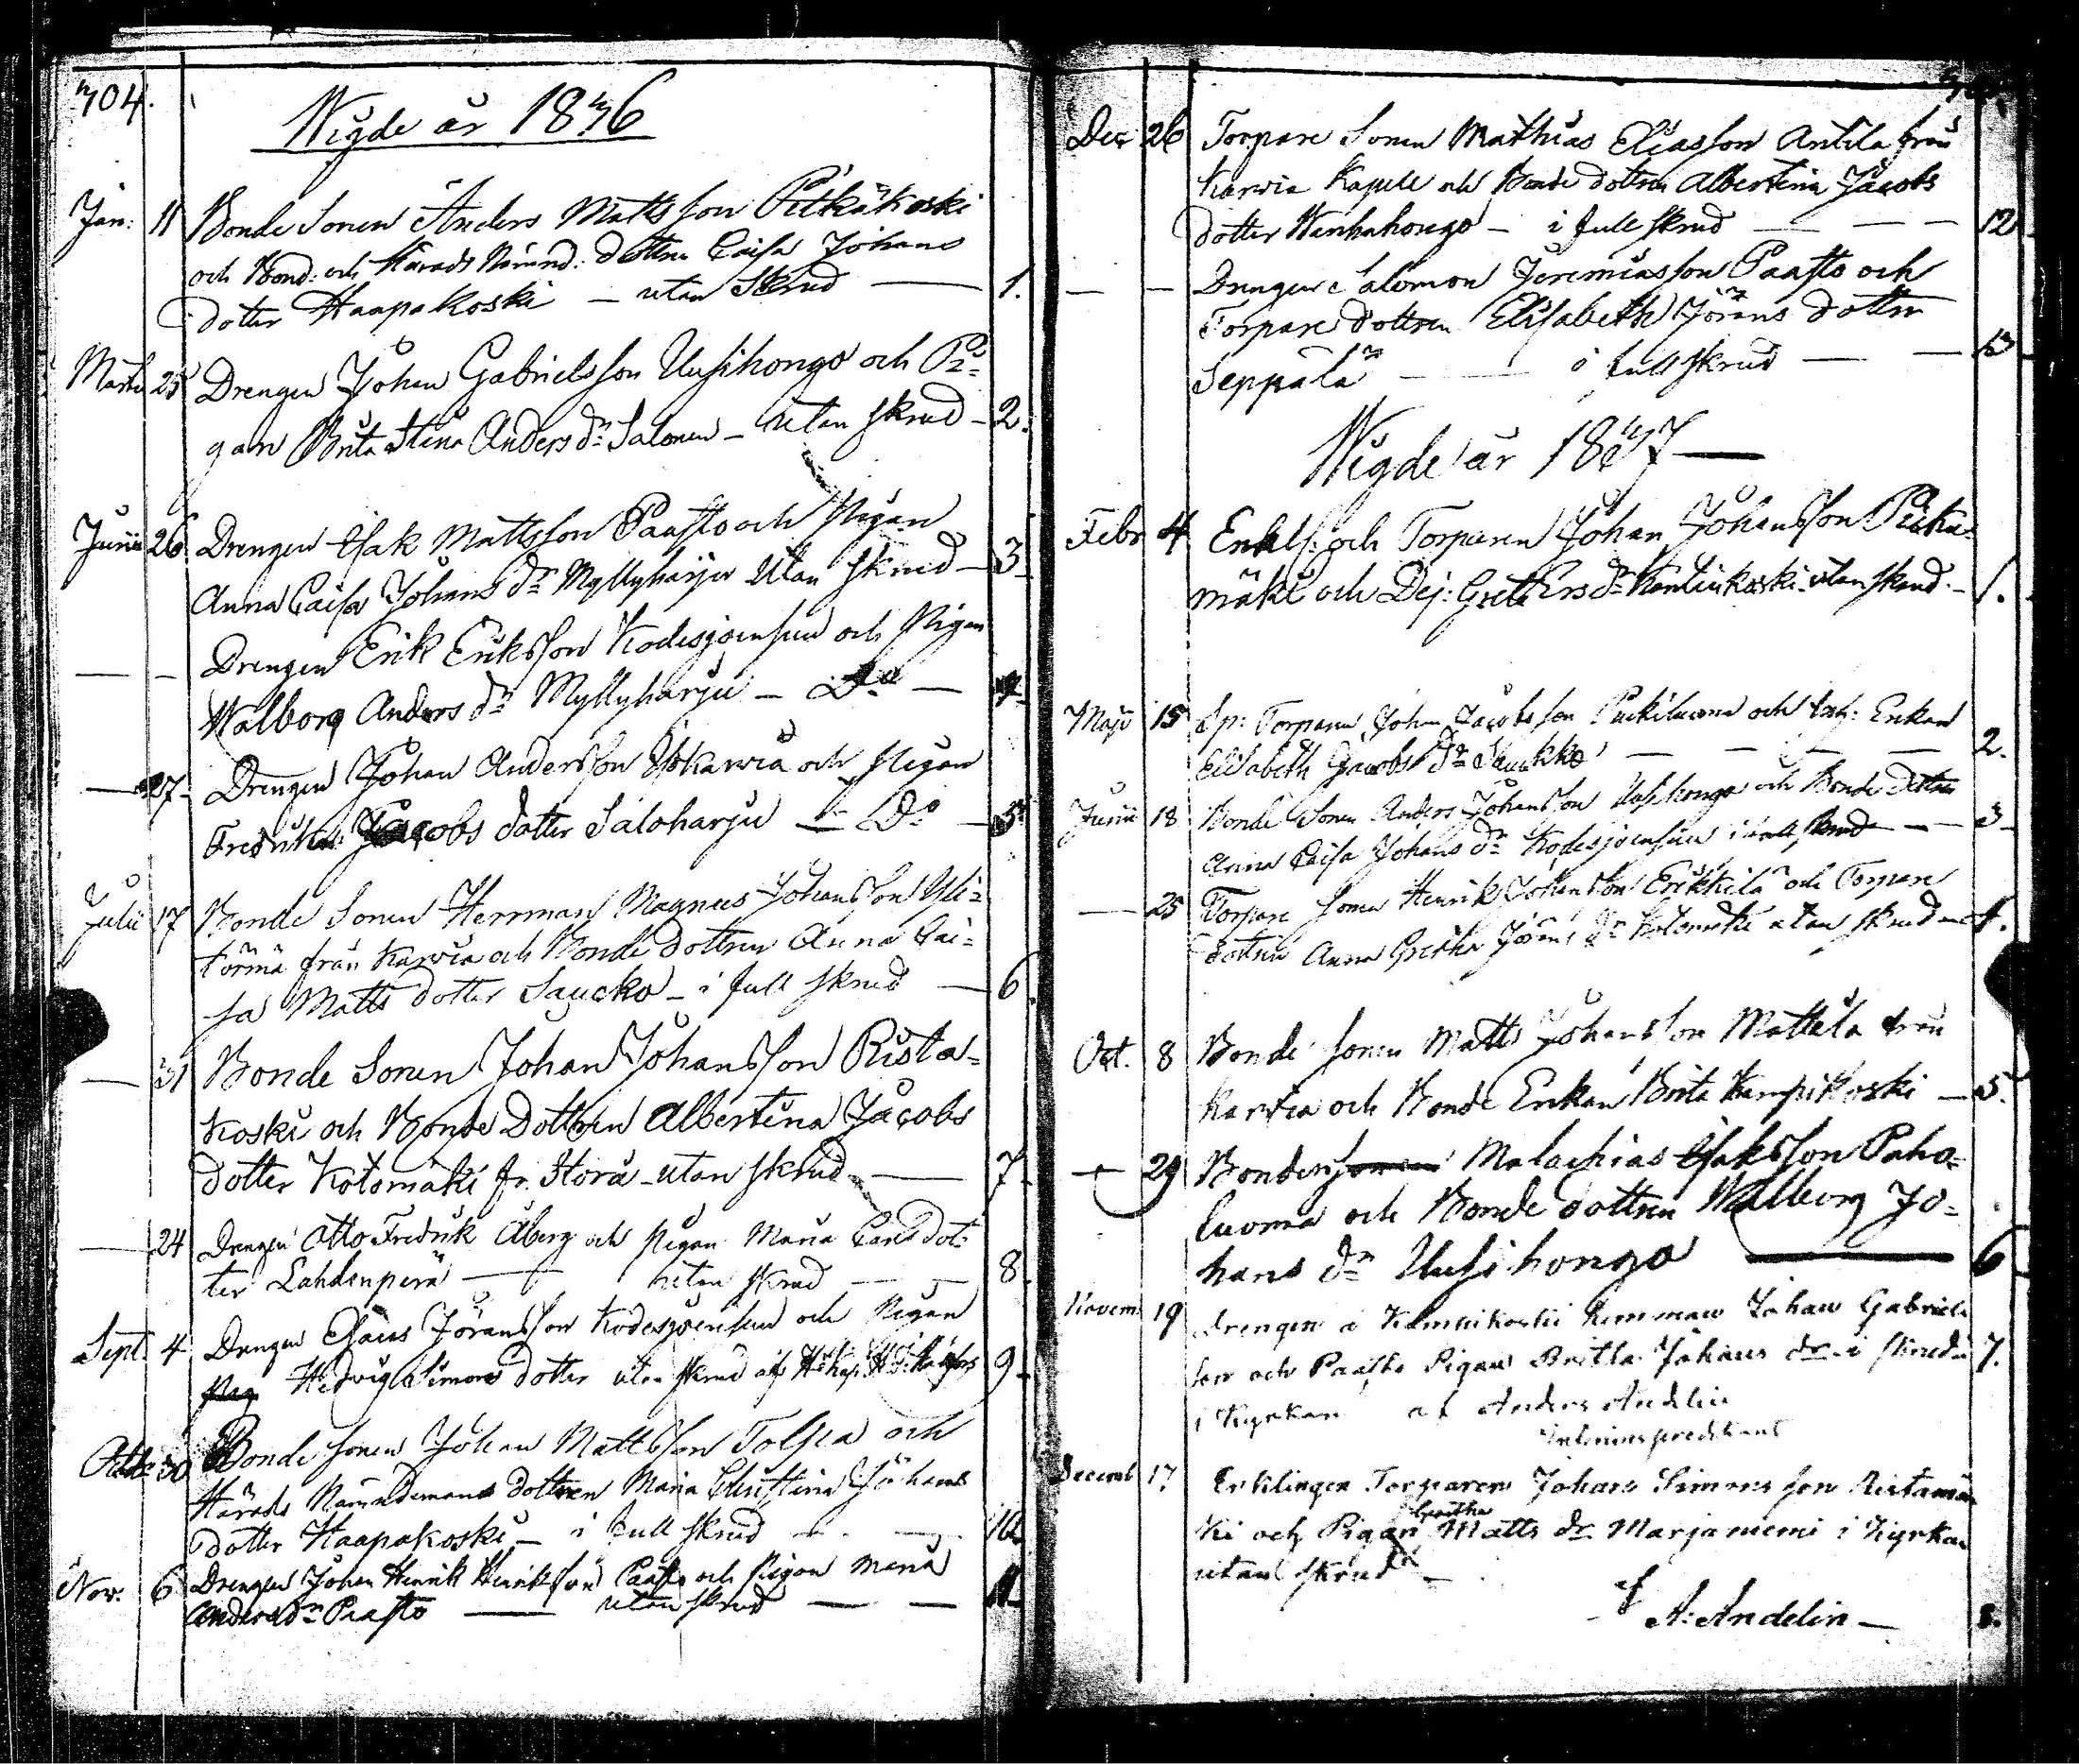 704.
Wigde år 1846
Jan: 11 Bonde Sonen Anders Mattsson Pitkäkoski
och Bond: och Härads Nämnd: dottren Caisa Johans
dotter Haapakoski — utan Skrud — 1.
Martii 25 Drengen Johan Gabrielsson Uusihongo och Pi-
gan Brita Stina Anders dr Salonen — utan skrud — 2.
Junii 26 Drengen Isak Mattsson Paasto och Pigan
Anna Caisa Johans dr Myllyharju utan skrud — 3
— — Drengen Erik Eriksson Kodesjoensuu och Pigan
Walborg Anders dr Myllyharju — Do — 4
— 27 Drengen Johan Andersson Ylikarvia och Pigan
Fredrika Jacobs dotter Saloharju — Do — 5
Julii 17 Bonde Sonen Herrman Magnus Johansson Yli-
törmä från Karvia och Bonde dottren Anna Cai-
sa Matts dotter Saucko — i full skrud — 6.
— 31 Bonde Sonen Johan Johansson Rista-
koski och Bonde Dottren Albertina Jacobs
dotter Kotomäki fr. Storå — utan skrud — 7.
— 24 Drengen Otto Fredrik Åberg och Pigan Maria Carls dot-
ter Lahdenperä — utan skrud — 8.
Sept. 4 Drengen Esaias Jöransson Kodesjoensuu och Pigan
Pig Hedvig Simons dotter utan skrud af 9.
Octob: 30 Bonde sonen Johan Mattsson Tolsia och
Härads Nämndemans dottren Maria Christina Johans
dotter Haapakoski — i full skrud — 10
Nov. 6 Drengen Johan Henrik Henriksson Paasto och Pigan Maria
Anders dr Paasto — utan skrud — 11
Dec 26 Torpare Sonen Mathias Eliasson Antila från
Karvia Kapell och Bonde dottren Albertina Jacobs
dotter Wanhahongo — i full skrud — 12
— — Drengen Salomon Jeremiasson Paasto och
Torpare dottren Elisabeth Jörans dotter
Seppälä — i full skrud — 13
Wigde år 1847 —
Febr 4 Enkl: och Torparen Johan Johansson
mäki och Dej: Greta Ers dr utan skrud — 1.
Maji 15 Sp: Torparen Johan Jacobsson och Enkan
Elisabeth Jacobs dr Saukko — 2.
Junii 18 Bonde Sonen Anders Johansson Uusihongo och Bonde Dottren
Anna Caisa Johans dr Kodesjoensuu i full skrud — 3
— 25 Torpare Sonen Henrik Johansson Erkkilä och Torpare
dottren Anna Gretha Jörans dr Kotomäki utan skrud — 4.
Oct. 8 Bonde sonen Matts Johansson Mattila från
Karvia och Bonde Enkan Brita Kampikoski — 5.
— 29 Bonden sonen Malachias Isaksson Paho-
luoma och Bonde dottren Walborg Jo-
hans dr Uusihongo — 6
Novem 19 Drengen å Hemman Johan Gabriels
son och Paasto Pigan Britta Johans dr i skrud 7.
i Kyrkan af Anders Andelin
Interims predikant
Decemb 17 Enklingen Torparen Johan Simonsson Ristamä
ki och Pigan Gretha Matts dr Marjaniemi i Kyrkan
utan skrud —
af
A: Andelin — 8.